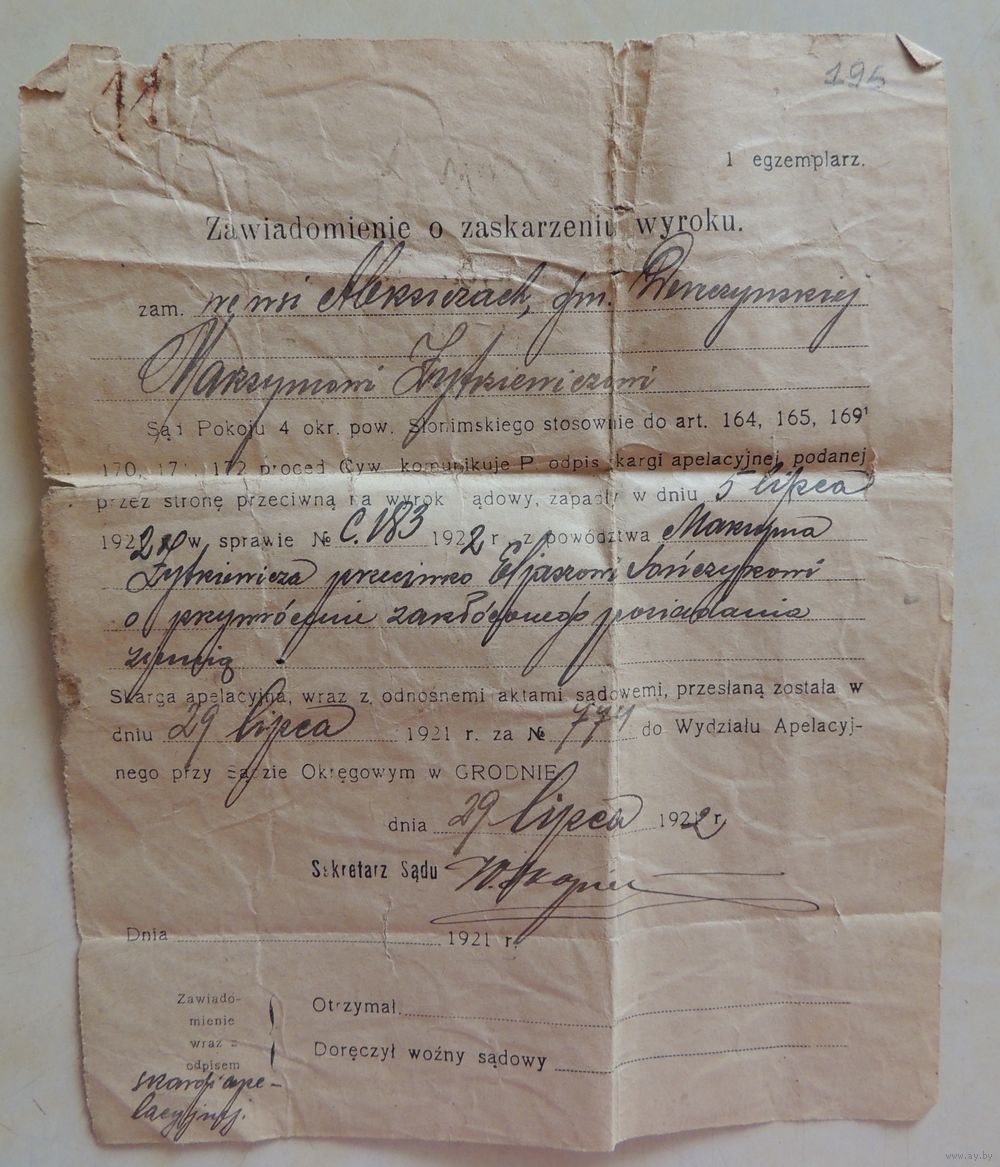 11
195
1 egzemplarz.
Zawiadomienie o zaskarzeniu wyroku.
zam. we wsi Aleksiczach, gm. Dereczyńskiej
Maksymowi Żytkiewiczowi
Sąd Pokoju 4 okr. pow. Słonimskiego stosownie do art. 164, 165, 169¹
170, 171, 172 proced Cyw. komunikuje P odpis skargi apelacyjnej, podanej
przez stronę przeciwną na wyrok sądowy, zapadły w dniu 5 lipca
1922 r w sprawie № C. 183 1922 r. z powództwa Maksyma
Żytkiewicza przeciwko Eljaszowi Jańczykowi
o przywrócenie zakłóconego posiadania
ziemią
Skarga apelacyjna, wraz z odnośnemi aktami sądowemi, przesłaną została w
dniu 29 lipca 1921 r. za № 774 do Wydziału Apelacyj-
nego przy Sądzie Okręgowym w GRODNIE
dnia 29 lipca 1922 r.
Sekretarz Sądu
Dnia 1921 r.
Zawiado-
mienie
wraz z
odpisem
skargi ape-
lacyjnej.
Otrzymał
Doręczył woźny sądowy
www.ay.by